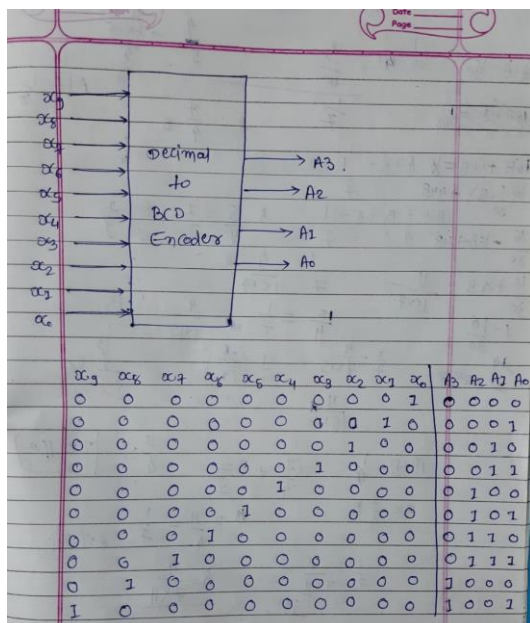 Date
Page
x9
x8
x7
x6
x5
x4
x3
x2
x1
x0
Decimal
to
BCD
Encoder
A3
A2
A1
A0
x9 x8 x7 x6 x5 x4 x3 x2 x1 x0 A3 A2 A1 A0
0 0 0 0 0 0 0 0 0 1 0 0 0 0
0 0 0 0 0 0 0 0 1 0 0 0 0 1
0 0 0 0 0 0 0 1 0 0 0 0 1 0
0 0 0 0 0 0 1 0 0 0 0 0 1 1
0 0 0 0 0 1 0 0 0 0 0 1 0 0
0 0 0 0 1 0 0 0 0 0 0 1 0 1
0 0 0 1 0 0 0 0 0 0 0 1 1 0
0 0 1 0 0 0 0 0 0 0 0 1 1 1
0 1 0 0 0 0 0 0 0 0 1 0 0 0
1 0 0 0 0 0 0 0 0 0 1 0 0 1